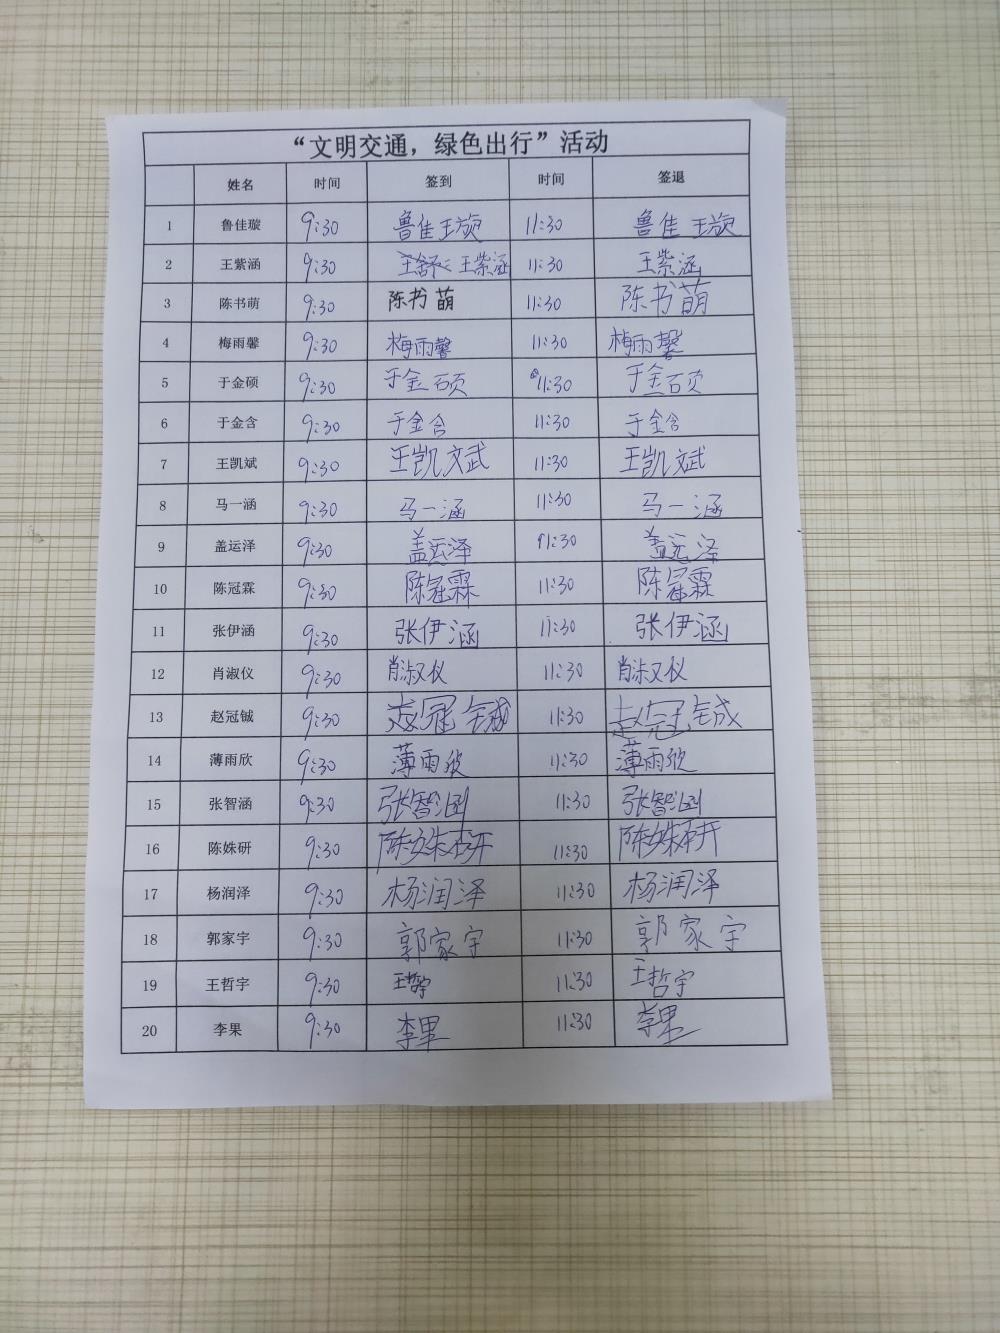 “文明交通，绿色出行”活动
姓名 时间 签到 时间 签退
1 鲁佳璇 9:30 鲁佳璇 11:30 鲁佳璇
2 王紫涵 9:30 王紫涵 11:30 王紫涵
3 陈书萌 9:30 陈书萌 11:30 陈书萌
4 梅雨馨 9:30 梅雨馨 11:30 梅雨馨
5 于金硕 9:30 于金硕 11:30 于金硕
6 于金含 9:30 于金含 11:30 于金含
7 王凯斌 9:30 王凯斌 11:30 王凯斌
8 马一涵 9:30 马一涵 11:30 马一涵
9 盖运泽 9:30 盖运泽 11:30 盖运泽
10 陈冠霖 9:30 陈冠霖 11:30 陈冠霖
11 张伊涵 9:30 张伊涵 11:30 张伊涵
12 肖淑仪 9:30 肖淑仪 11:30 肖淑仪
13 赵冠铖 9:30 赵冠铖 11:30 赵冠铖
14 薄雨欣 9:30 薄雨欣 11:30 薄雨欣
15 张智涵 9:30 张智涵 11:30 张智涵
16 陈姝研 9:30 陈姝研 11:30 陈姝研
17 杨润泽 9:30 杨润泽 11:30 杨润泽
18 郭家宇 9:30 郭家宇 11:30 郭家宇
19 王哲宇 9:30 王哲宇 11:30 王哲宇
20 李果 9:30 李果 11:30 李果